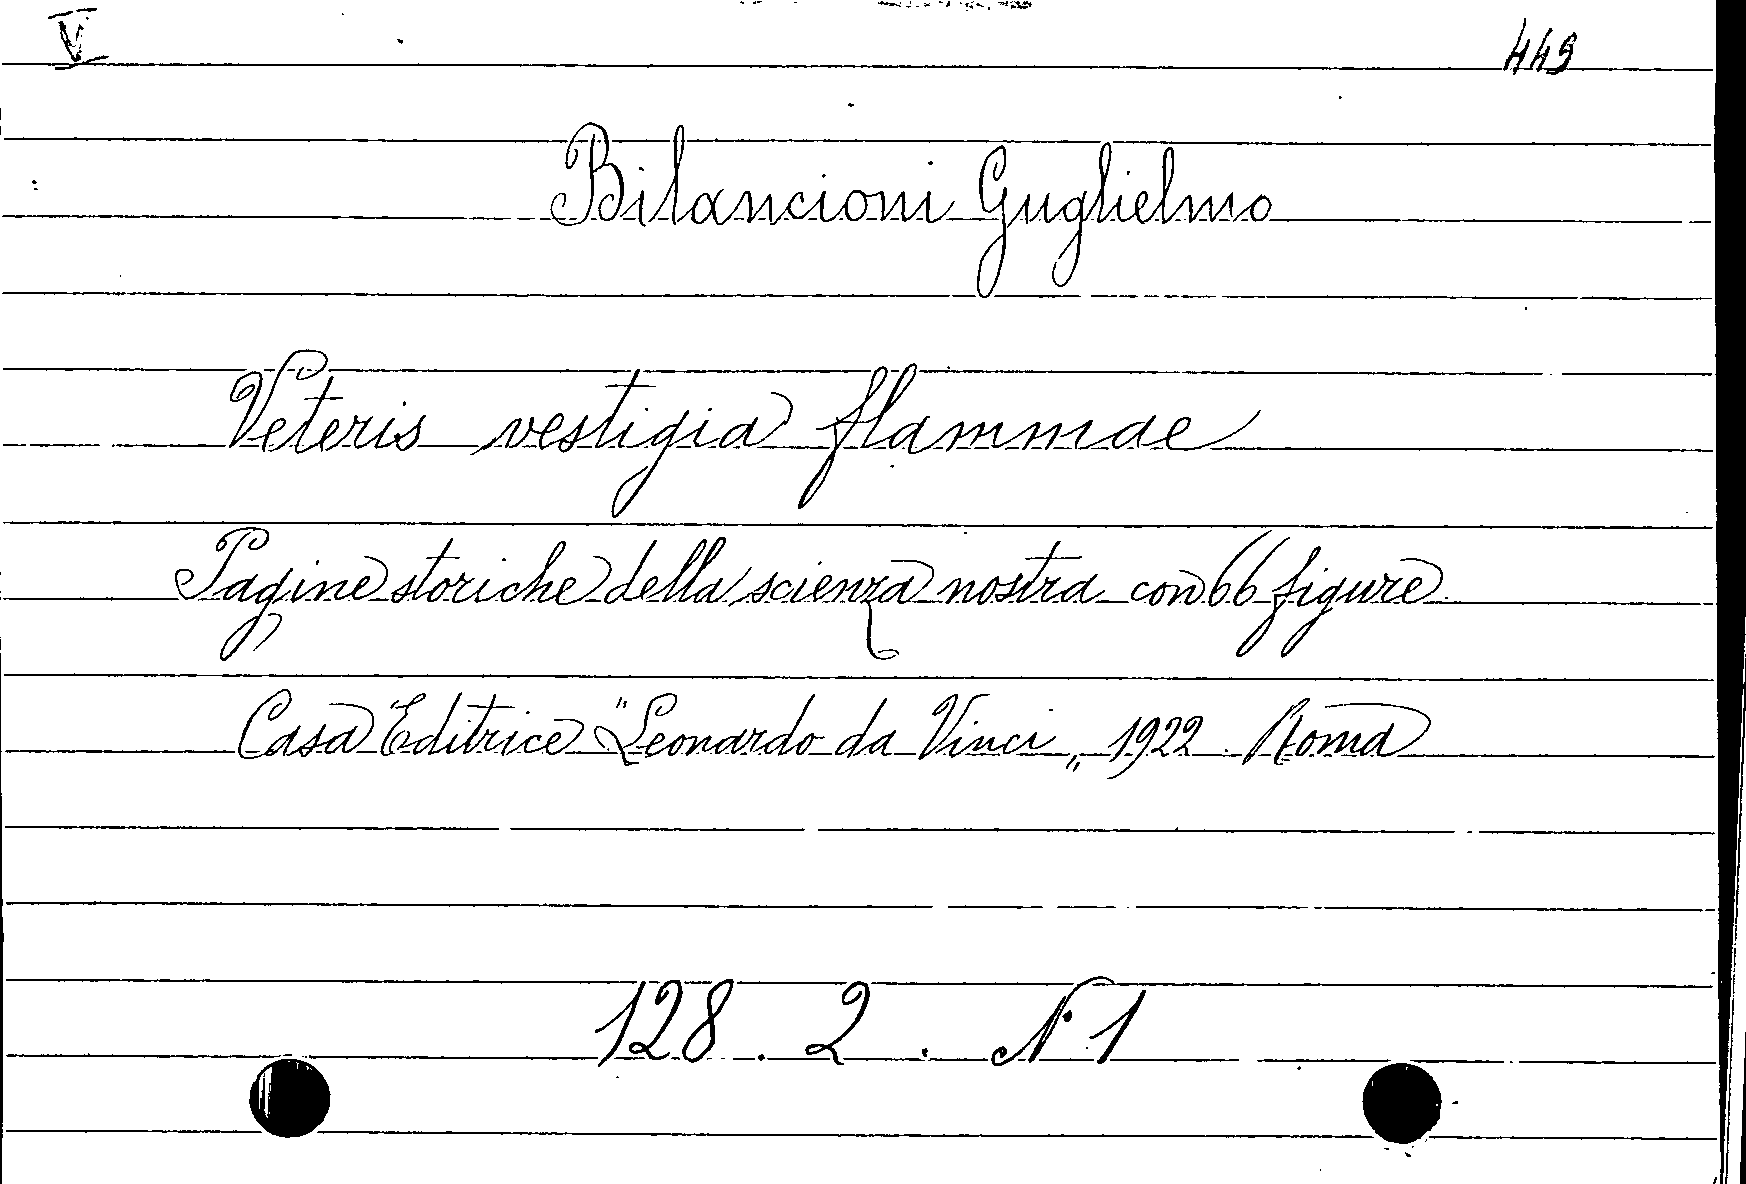 V 449
Bilancioni Guglielmo
Veteris vestigia flammae
Pagine storiche della scienza nostra con 66 figure
Casa Editrice "Leonardo da Vinci„ 1922. Roma
128. 2. N. 1